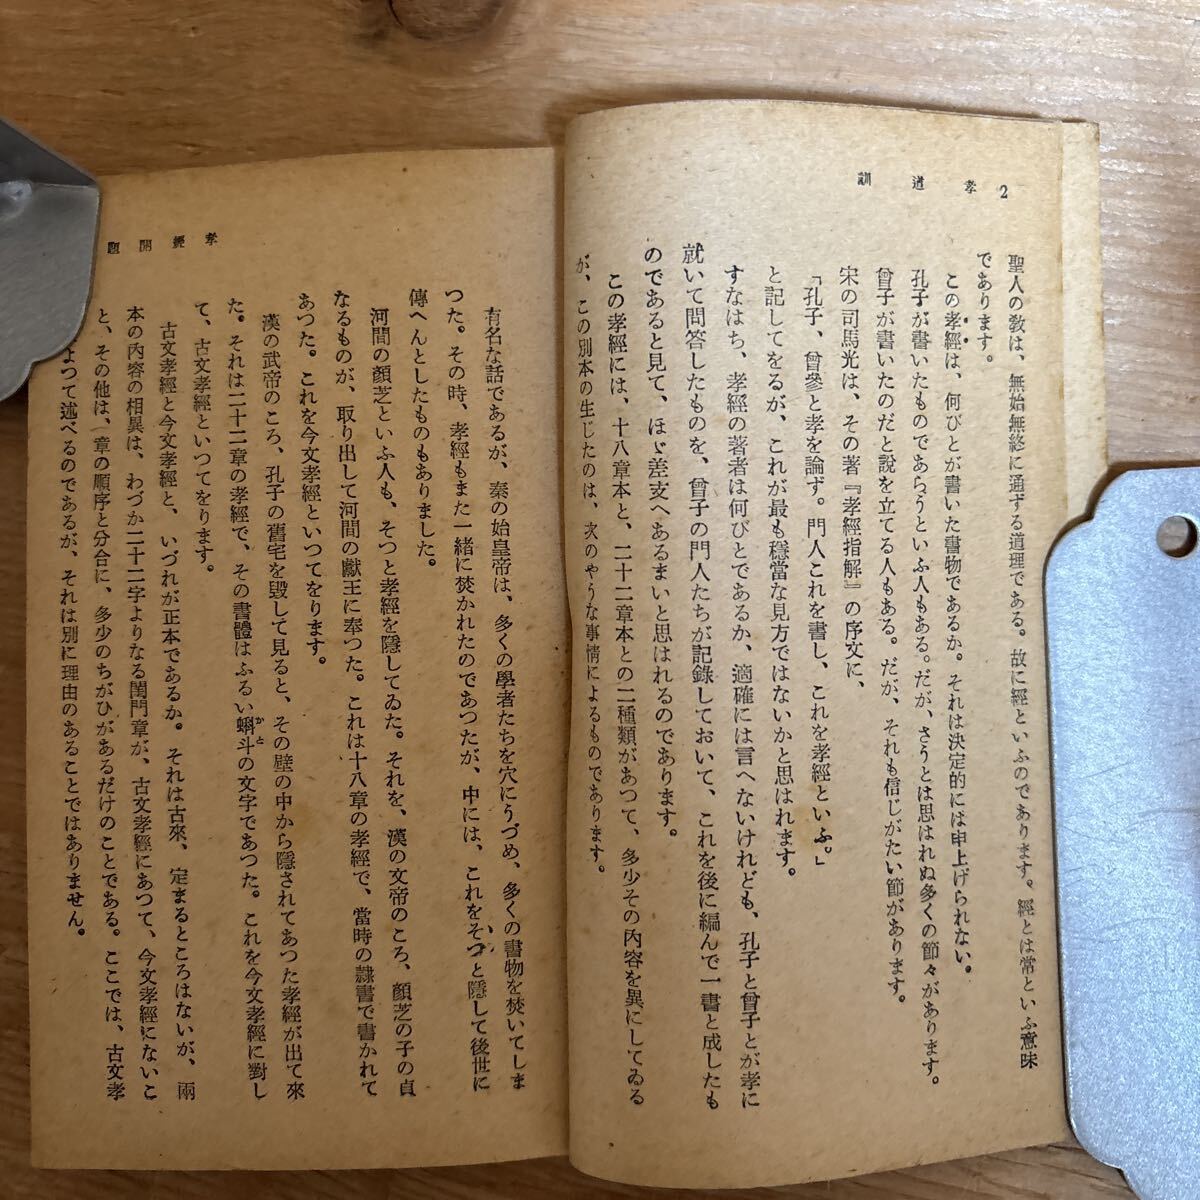 2 孝道訓
聖人の敎は、無始無終に通ずる道理である。故に經といふのであります。經とは常といふ意味
であります。
この孝經は、何びとが書いた書物であるか。それは決定的には申上げられない。
孔子が書いたものであらうといふ人もある。だが、さうとは思はれぬ多くの節々があります。
曾子が書いたのだと說を立てる人もある。だが、それも信じがたい節があります。
宋の司馬光は、その著『孝經指解』の序文に、
「孔子、曾參と孝を論ず。門人これを書し、これを孝經といふ。」
と記してをるが、これが最も穩當な見方ではないかと思はれます。
すなはち、孝經の著者は何びとであるか、適確には言へないけれども、孔子と曾子とが孝に
就いて問答したものを、曾子の門人たちが記錄しておいて、これを後に編んで一書と成したも
のであると見て、ほゞ差支へあるまいと思はれるのであります。
この孝經には、十八章本と、二十二章本との二種類があつて、多少その內容を異にしてゐる
が、この別本の生じたのは、次のやうな事情によるものであります。
孝經開題
有名な話であるが、秦の始皇帝は、多くの學者たちを穴にうづめ、多くの書物を焚いてしま
つた。その時、孝經もまた一緒に焚かれたのであつたが、中には、これをそつと隱して後世に
傳へんとしたものもありました。
河間の顏芝といふ人も、そつと孝經を隱してゐた。それを、漢の文帝のころ、顏芝の子の貞
なるものが、取り出して河間の獻王に奉つた。これは十八章の孝經で、當時の隷書で書かれて
あつた。これを今文孝經といつてをります。
漢の武帝のころ、孔子の舊宅を毀して見ると、その壁の中から隱されてあつた孝經が出て來
た。それは二十二章の孝經で、その書體はふるい蝌斗の文字であつた。これを今文孝經に對し
て、古文孝經といつてをります。
古文孝經と今文孝經と、いづれが正本であるか。それは古來、定まるところはないが、兩
本の內容の相異は、わづか二十二字よりなる閨門章が、古文孝經にあつて、今文孝經にないこ
と、その他は、章の順序と分合に、多少のちがひがあるだけのことである。ここでは、古文孝
よつて述べるのであるが、それは別に理由のあることではありません。